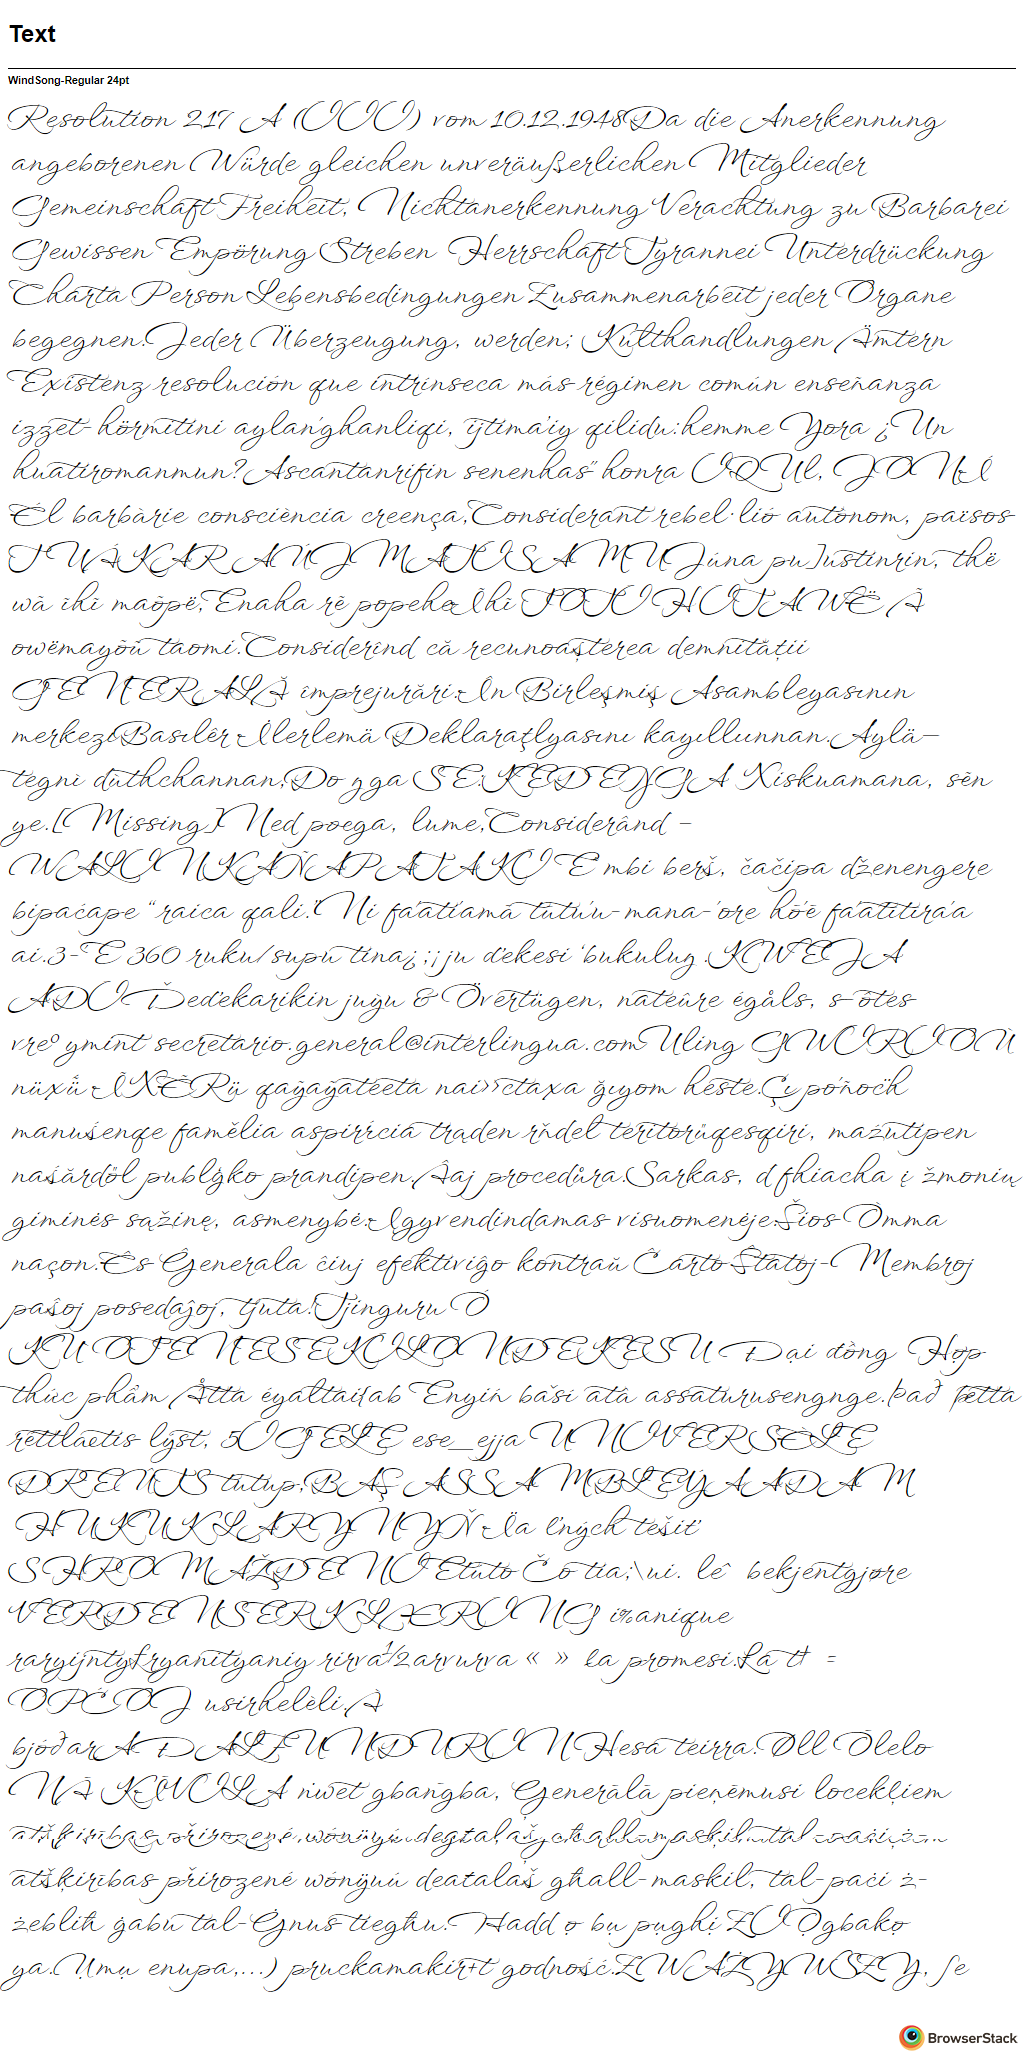 Text
WindSong-Regular 24pt
Resolution 217 A (III) vom 10.12.1948Da die Anerkennung
angeborenen Würde gleichen unveräußerlichen Mitglieder
Gemeinschaft Freiheit, Nichtanerkennung Verachtung zu Barbarei
Gewissen Empörung Streben Herrschaft Tyrannei Unterdrückung
Charta Person Lebensbedingungen Zusammenarbeit jeder Organe
begegnen.Jeder Überzeugung, werden; Kulthandlungen Ämtern
Existenz resolución que intrínseca más régimen común enseñanza
izzet-hörmitini aylan'ghanliqi, ijtima'iy qilidu:hemme Yora ¿Un
huatiromanmun?Ascantanrifin senenhas" honra IQUl, JONÍ
Él barbàrie consciència creença,Considerant rebel·lió autònom, països
TUÁKARAÚJMATISAMU Júna pu]ustinrin, thë
wã ĩhĩ maõpë;Enaha rẽ popehe.Ihĩ TOTIHITAWË Ã
owëmayõũ taomi.Considerînd că recunoaşterea demnităţii
GENERALĂ împrejurări.În Birleşmiş Asambleyasının
Basılêr İlerlemä kayıllıınnan.Aylä—
tegnì dùthchannan;Do gga Xiskuamana, sẽn
ye.[Missing]Ned poega, lume,Considerând –
E mbi berš, čačipa dženengere
bipaćape “raica qali.” Ni fa'ati'amā tūtu'u-mana-'ore hō'ē fa'atitira'a
ai.3-E 360 ruku/supu tina¿;¡ju d'ekesi ‘bukulug KWEJA
ADI juġu & Övertügen, nateûre égåls, s-ôtes
vreº ymint secretario.general@interlingua.com Uling
nüxṹ ĨXẼRü naĩ»ctaxa ğıyom héste.Çı
manuśenqe famĕlia trąden
naśărdöl publġko prandipen.Âaj procedůra.Sarkas, d fhiacha į žmonių
giminės sąžinę, asmenybė.Įgyvendindamas visuomenėje.Šios Òmma
naçon.Ês Ĝenerala ĉiuj efektiviĝo kontraŭ Ĉarto Ŝtatoj-Membroj
paŝoj posedaĵoj, tjuta!Tjinguru Ó
KUOTENESEKILONDEKESU Đại đồng Họp
thúc phẩm Åtta Enyiń assaturusengnge.það Þetta
réttlætis lýst, 5 IGELE ese_ejja
DREJTS tutup;BAŞ ASSAMBLEÝA ADAM
HUKUKLARYNYŇ Iľa ľných tešiť
SHROMAŽDENIE tuto Čo tia;\ui. lê bekjentgjøre
VERDENSERKLÆRING i‰anique
raryijnty£ryanityaniy rirva½arvurva « » ła promesi.Ła tł =
OPĆOJ usirhelèli.À
bjóðar AÐALFUNDURIN Hesa teirra.Øll Ōlelo
NĀ KĪVILA ṅwet gbaṅgba, Ģenerālā pieņēmusi locekļiem
atšķirības přirozené wónÿuú deatalaš għall-maskil, tal-paċi ż-
żebliħ ġabu tal-Ġnus tiegħu.Ħadd ọ bụ pụghị ZI Ọgbakọ
ya.Ụmụ enupa,...) pruckamakir+t godność.ZWAŻYWSZY, ſe
BrowserStack